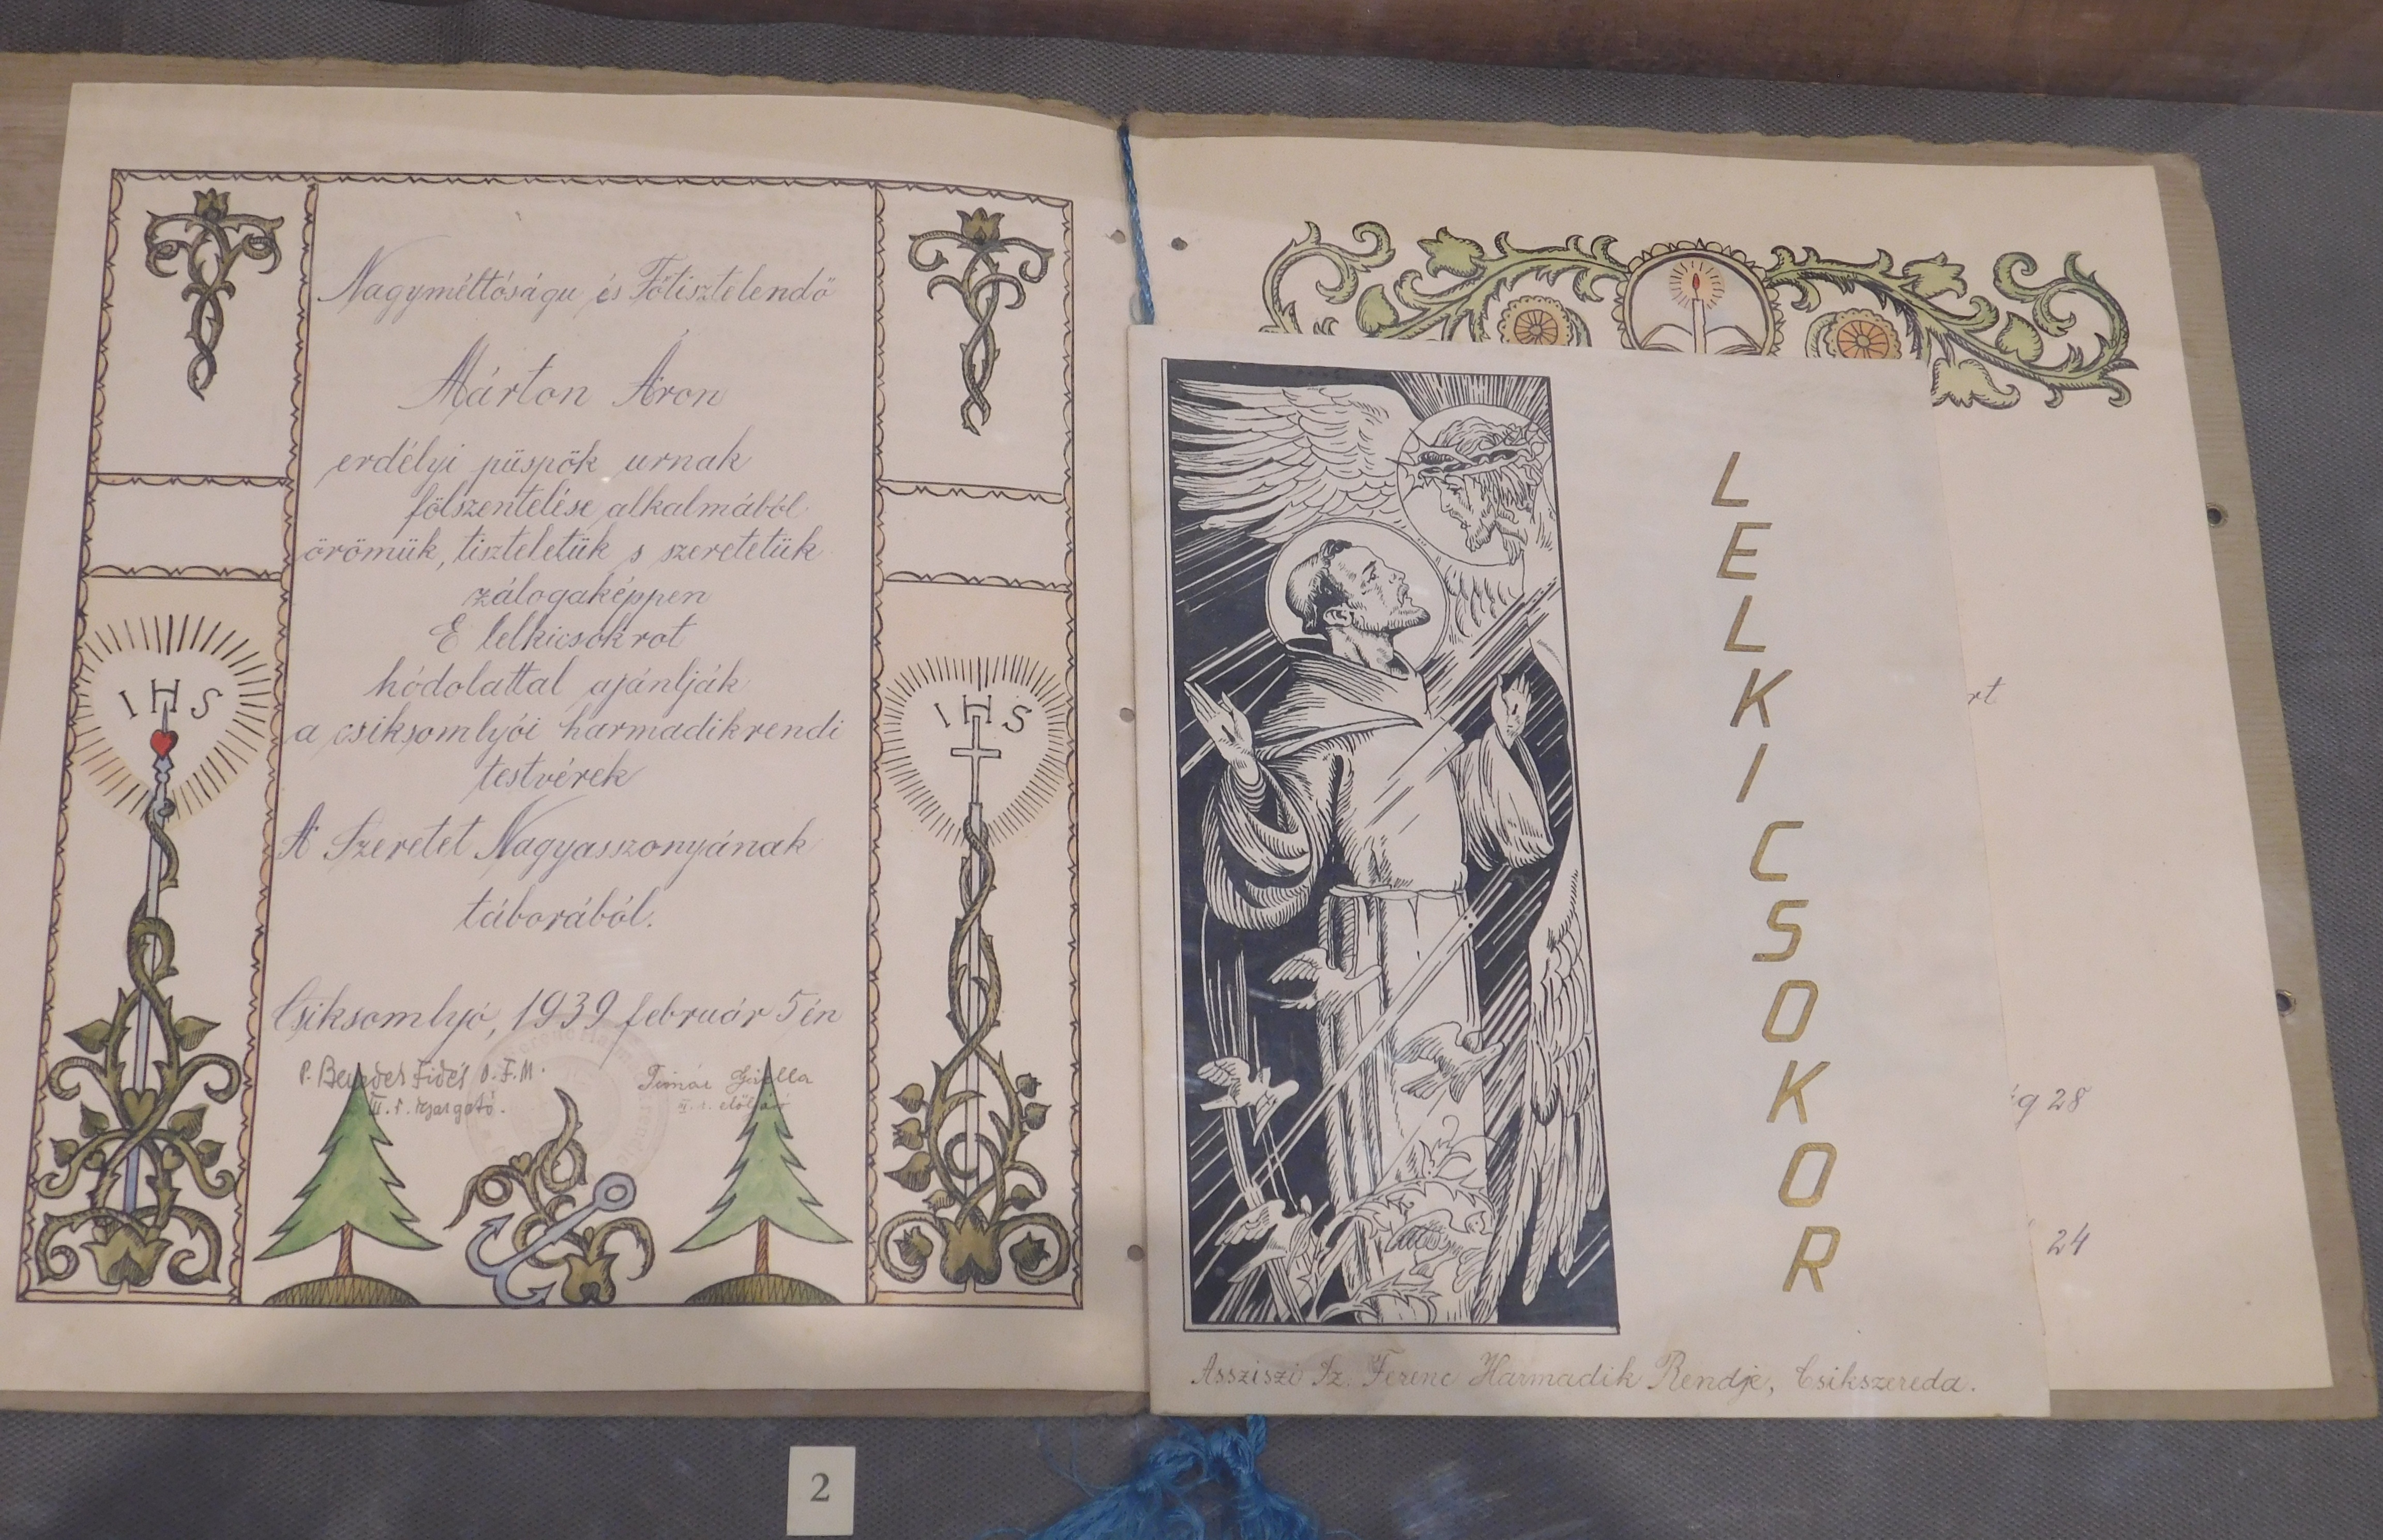 Nagyméltóságu és Főtisztelendő
Márton Áron
erdélyi püspök urnak
fölszentelése alkalmából
örömük, tiszteletük s szeretetük
zálogaképpen
E lelkicsokrot
hódolattal ajánlják
a csiksomlyói harmadikrendi
testvérek
A Szeretet Nagyasszonyának
táborából.
Csiksomlyó, 1939 február 5én
P. Benedek Fidél O.F.M.
III. r. igazgató.
Timár Gizella
III. r. elöljáró
IHS
IHS
LELKICSOKOR
Assziszi Sz. Ferenc Harmadik Rendje, Csikszereda.
rt
28
24
2